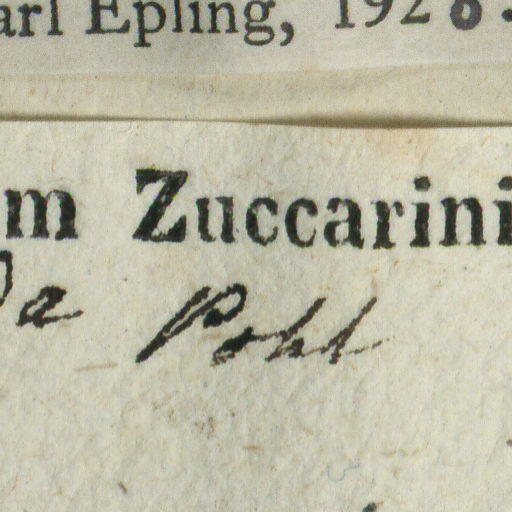 arl Epling, 1928.
m Zuccarini
a Pohl